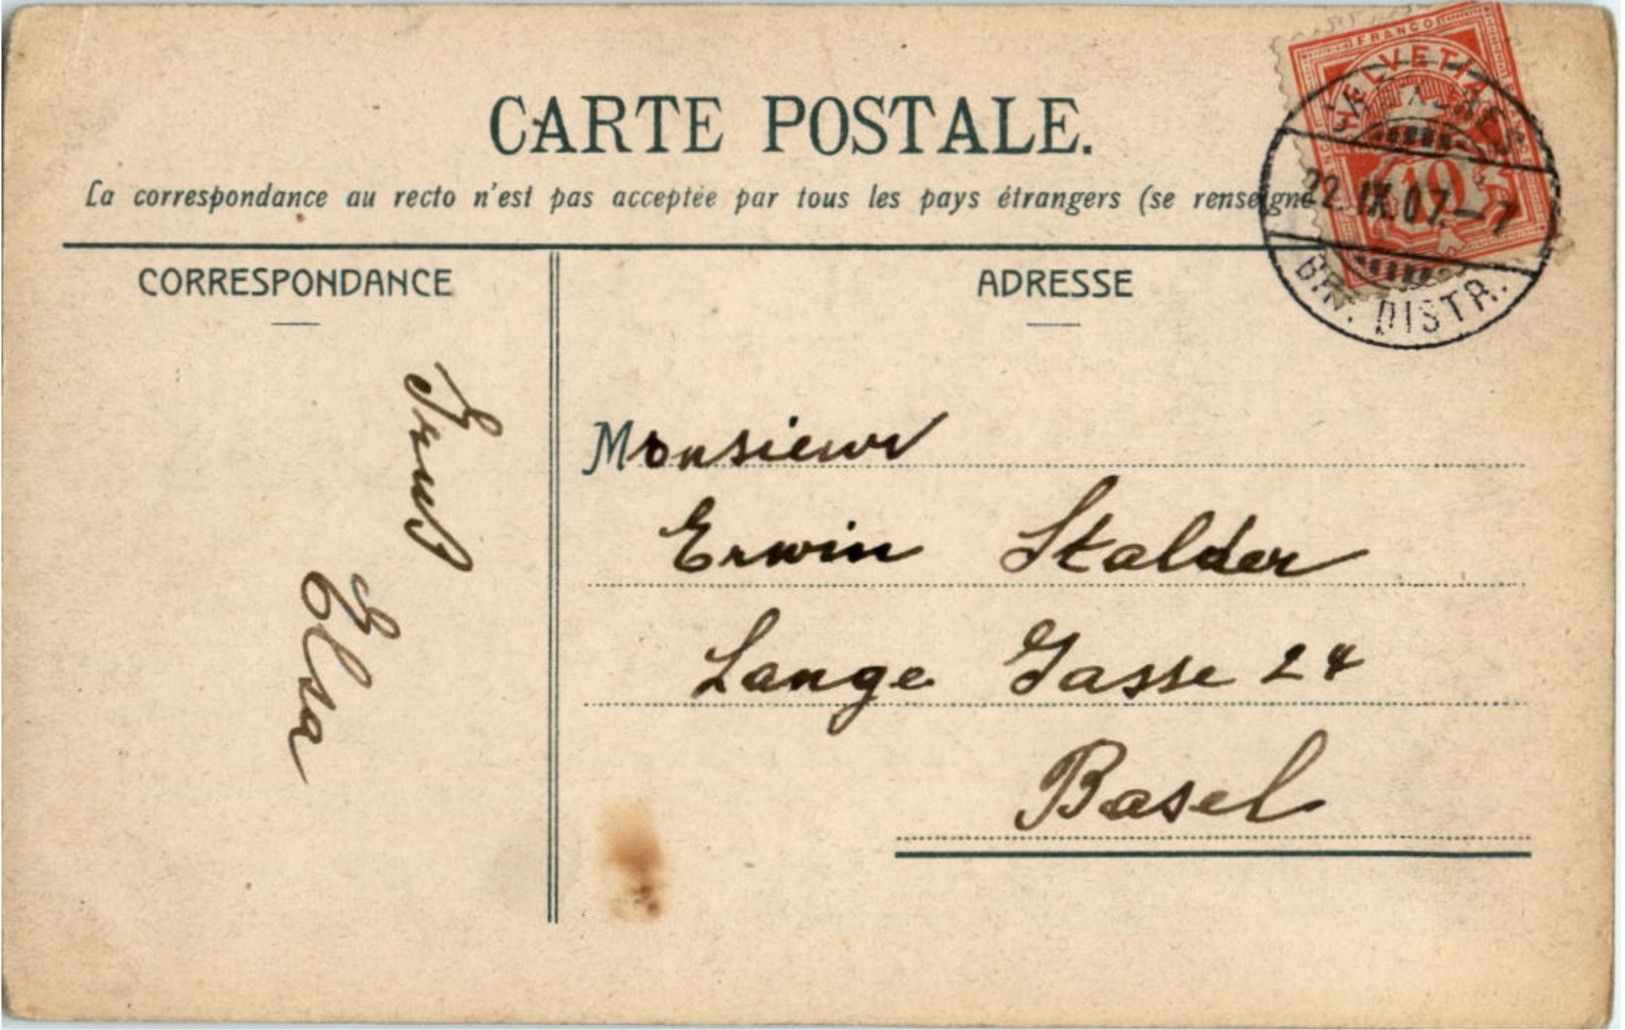 CARTE POSTALE.
La correspondance au recto n'est pas acceptée par tous les pays étrangers (se renseigne
CORRESPONDANCE
ADRESSE
FRANCO
HELVETIA
10
22.IX.07.-7
BR. DISTR.
Monsieur
Erwin Stalder
Lange Gasse 24
Basel
Ernst
Elsa